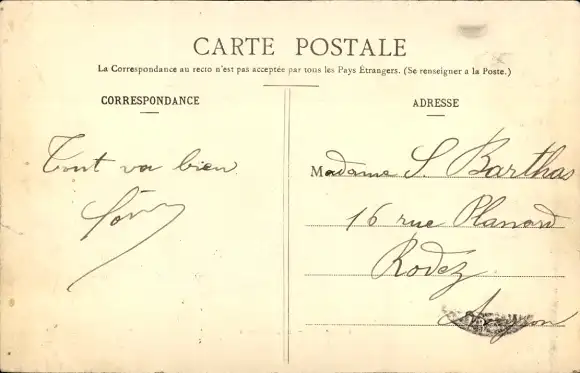 CARTE POSTALE
La Correspondance au recto n'est pas acceptée par tous les Pays Étrangers. (Se renseigner a la Poste.)
CORRESPONDANCE
Tout va bien
ADRESSE
Madame S. Barthas
16 rue Planard
Rodez
Aveyron